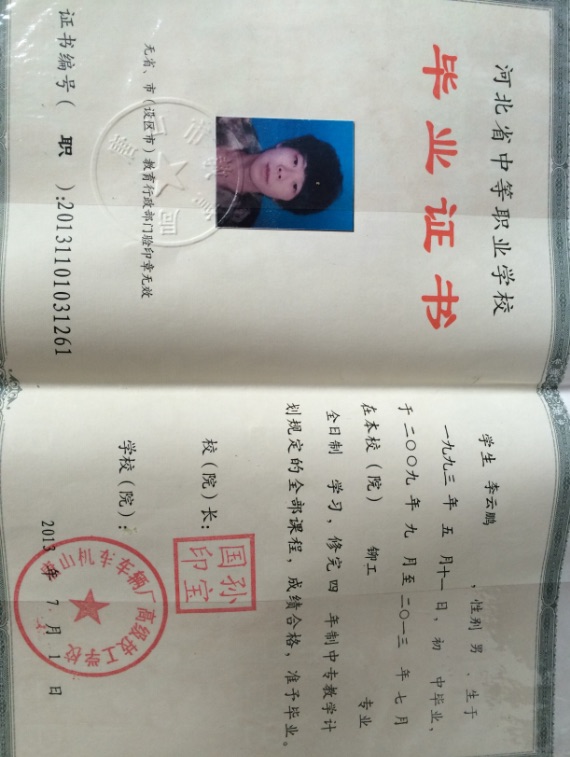 河北省中等职业学校
毕业证书
无省、市(设区市)教育行政部门验印章无效
证书编号( 职 ):20131101031261
学生 李云鹏 ，性别 男 ，生于
一九九三年 五 月十一日，初 中毕业、
于二〇〇九年 九 月至二〇一三 年 七月
在本校(院) 铆工 专业
全日制 学习，修完四 年制中专教学计
划规定的全部课程，成绩合格，准予毕业。
校(院)长：
孙宝国印
学校(院)：
山机车车辆厂高级技工学校
2013 年 7 月 1 日